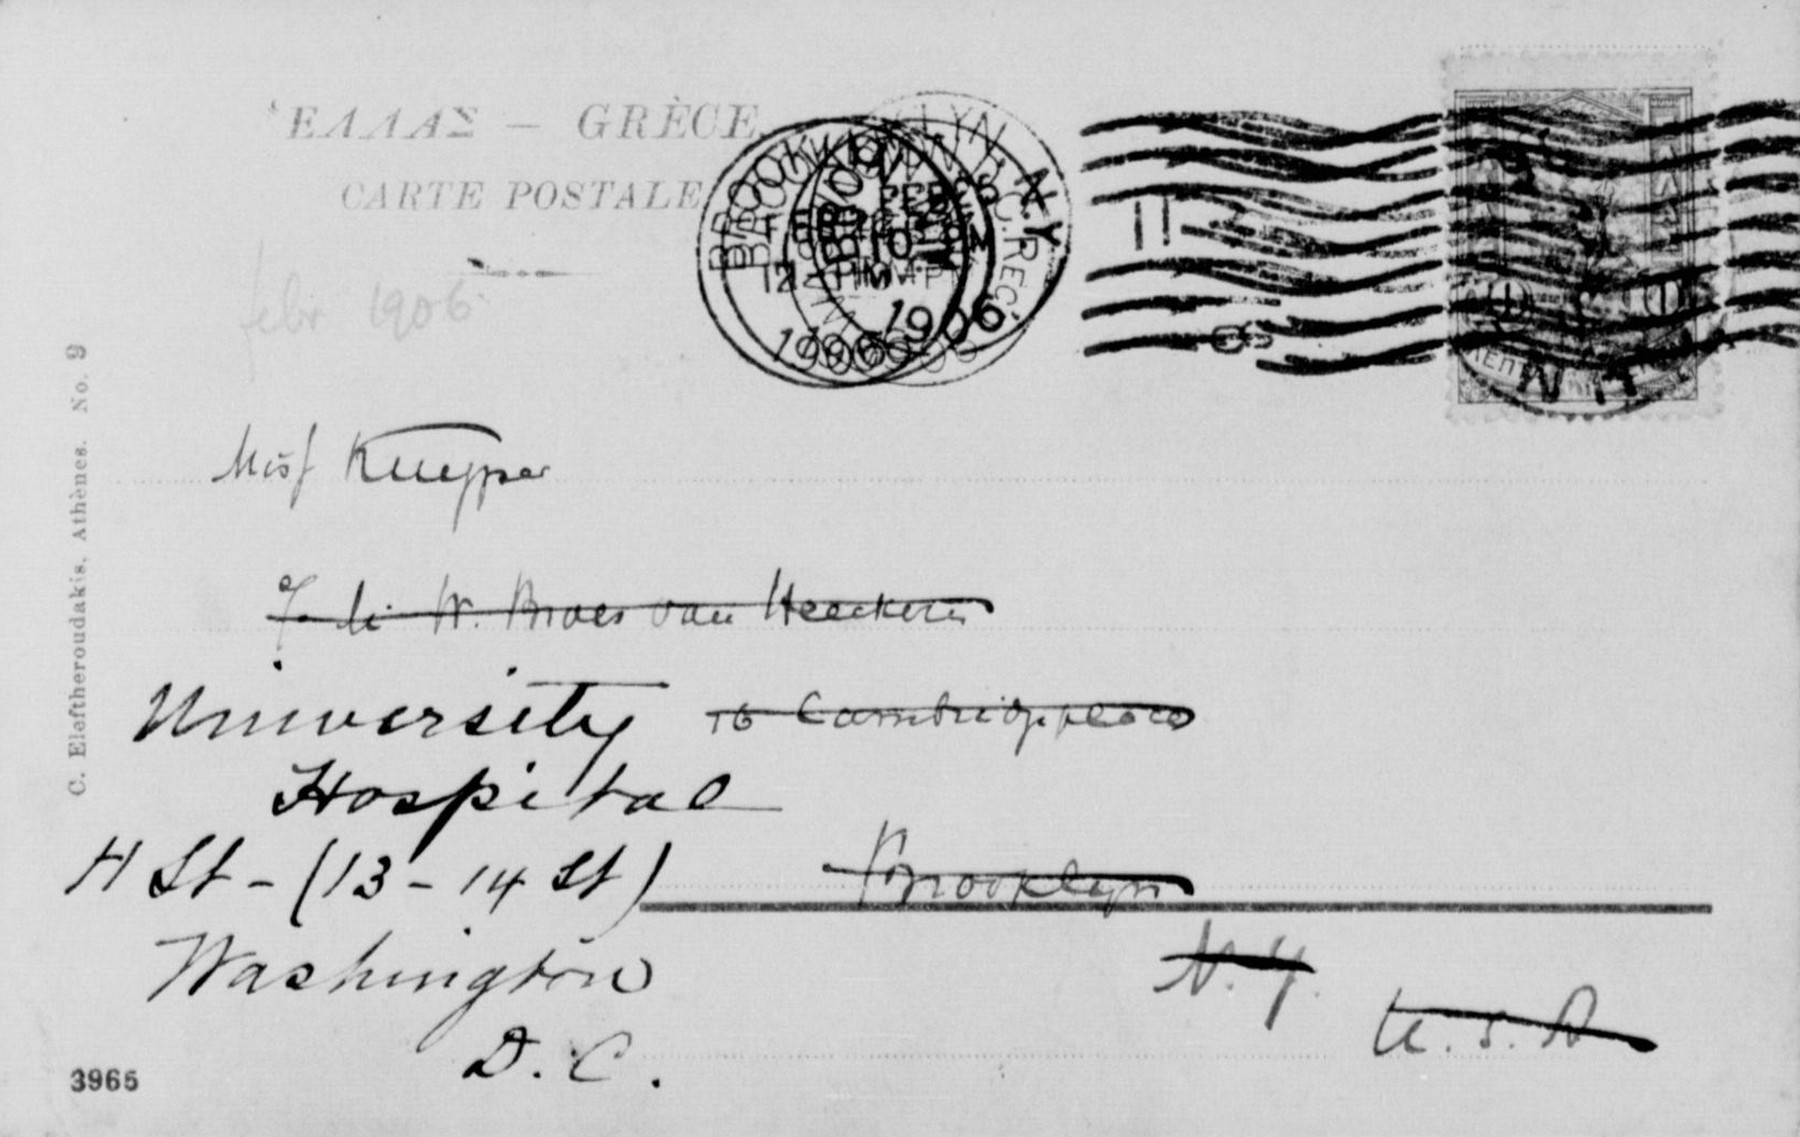 ἙΛΛΑΣ — GRÈCE
CARTE POSTALE
febr 1906
BROOKLYN, N.Y.
FEB 26
1906
C. Eleftheroudakis, Athènes. No. 9
Miss Kuyper
W. Broes van Heeckeren
University
16 Cambridgeplace
Hospital
H St - (13 - 14 St)
Brooklyn
Washington
N. Y.
U. S. A
D. C.
3965